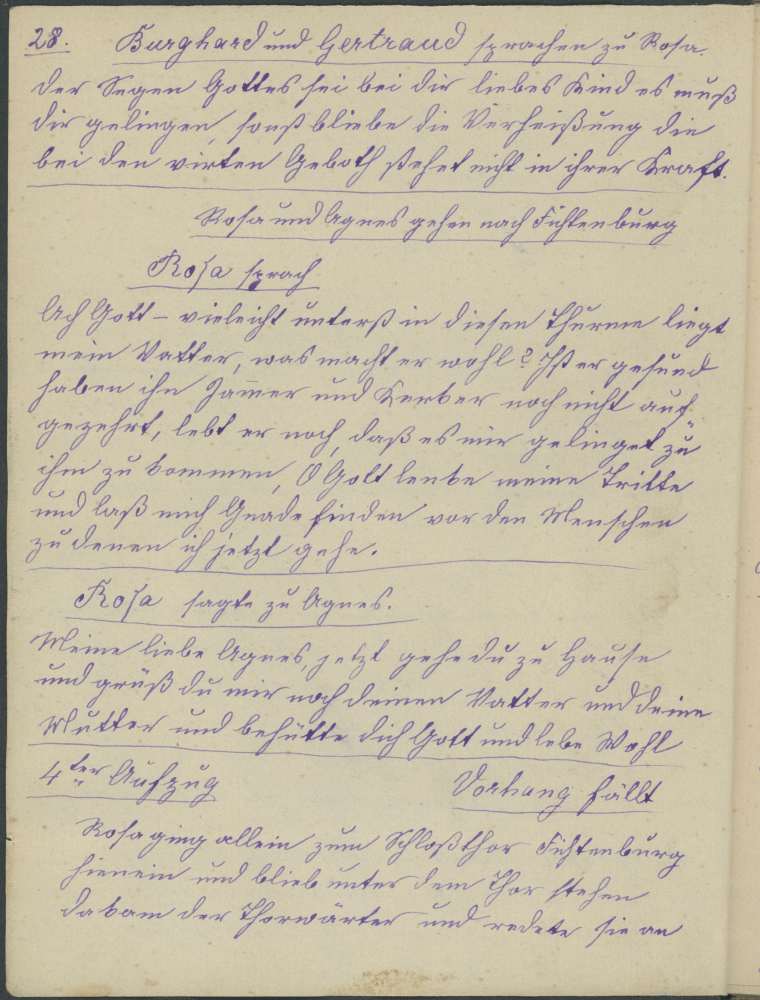 28. Burghard und Gertraud sprachen zu Rosa.
Der Segen Gottes sei bei dir liebes Kind es muß
dir gelingen, sonst bliebe die Verheißung die
bei den virten Geboth stehet nicht in ihrer Kraft.
Rosa und Agnes gehen nach Fichtenburg
Rosa sprach
Ach Gott – vieleicht unterst in diesen Thurme liegt
mein Vatter, was macht er wohl? Ist er gesund
haben ihn Jam̄er und Kerker noch nicht auf
gezehrt, lebt er noch, daß es mir gelinget zu
ihm zu kommen, O Gott lenke meine Tritte
und laß mich Gnade finden vor den Menschen
zu denen ich jetzt gehe.
Rosa sagte zu Agnes.
Meine liebe Agnes, jetzt gehe du zu Hause
und grüß du mir noch deinen Vatter und deine
Mutter und behütte dich Gott und lebe Wohl
4ter Aufzug Vorhang fällt
Rosa ging allein zum Schloßthor Fichtenburg
hienein und blieb unter dem Thor stehen
da kam der Thorwärter und redete sie an